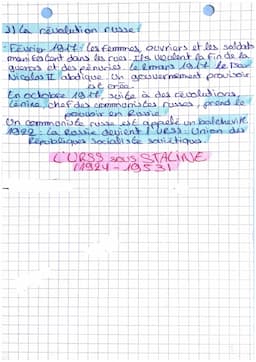 3) La révolution russe:
- Février 1917: les femmes, ouvriers et les soldats
manifestent dans les rues. Ils veulent la fin de la
guerre et des pénuries. Le 2 mars 1917 le tsar
Nicolas II abdique. Un gouvernement provisoir
est créé.
En octobre 1917, suite à des révolutions,
Lénine, chef des communistes russes, prend le
pouvoir en Russie
Un communiste russe est appelé un bolchevik.
1922: la Russie devient l'URSS: Union des
Républiques Socialiste soviétiques.
L'URSS sous STALINE
(1924-1953)